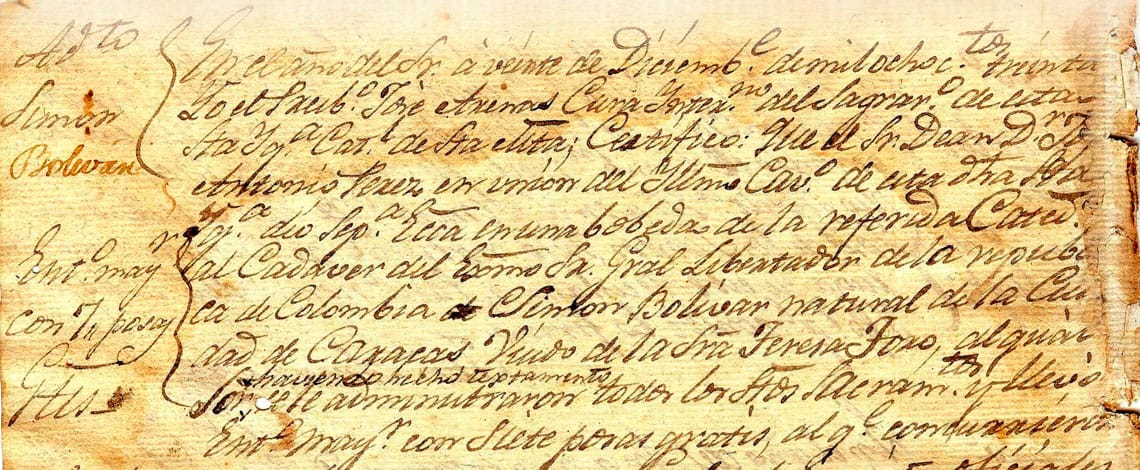 Ad.to
Simón
Bolivár
Ent.o may.r
con 7 posas
Gtis
En el año del Sr. à veinte de Diciemb.e de mil ochoc.tos trinta
Yo el Presb.o José Arenas Cura Ynter.no del Sagrar.o de esta
Sta Yg.a Cat.l de Sta Mta; Certifico: Que el Sr. Dean D.r
Antonio Perez en union del Yllmo Cav.o de esta dha Sta
Yg.a dio Sep.a Ecca en una bobeda de la referida Cated.l
al Cadaver del Exmo Sr. Gral Libertador de la republi
ca de Colombia Simon Bolívar natural de la Ciu
dad de Caracas Viudo de la Sra Teresa Toro, al quál
haviendo hecho textamento
Sor. se le administraron todos los Stos Sacram.tos y llevó
Ent.o may.r con Siete posas gratis, al q.e